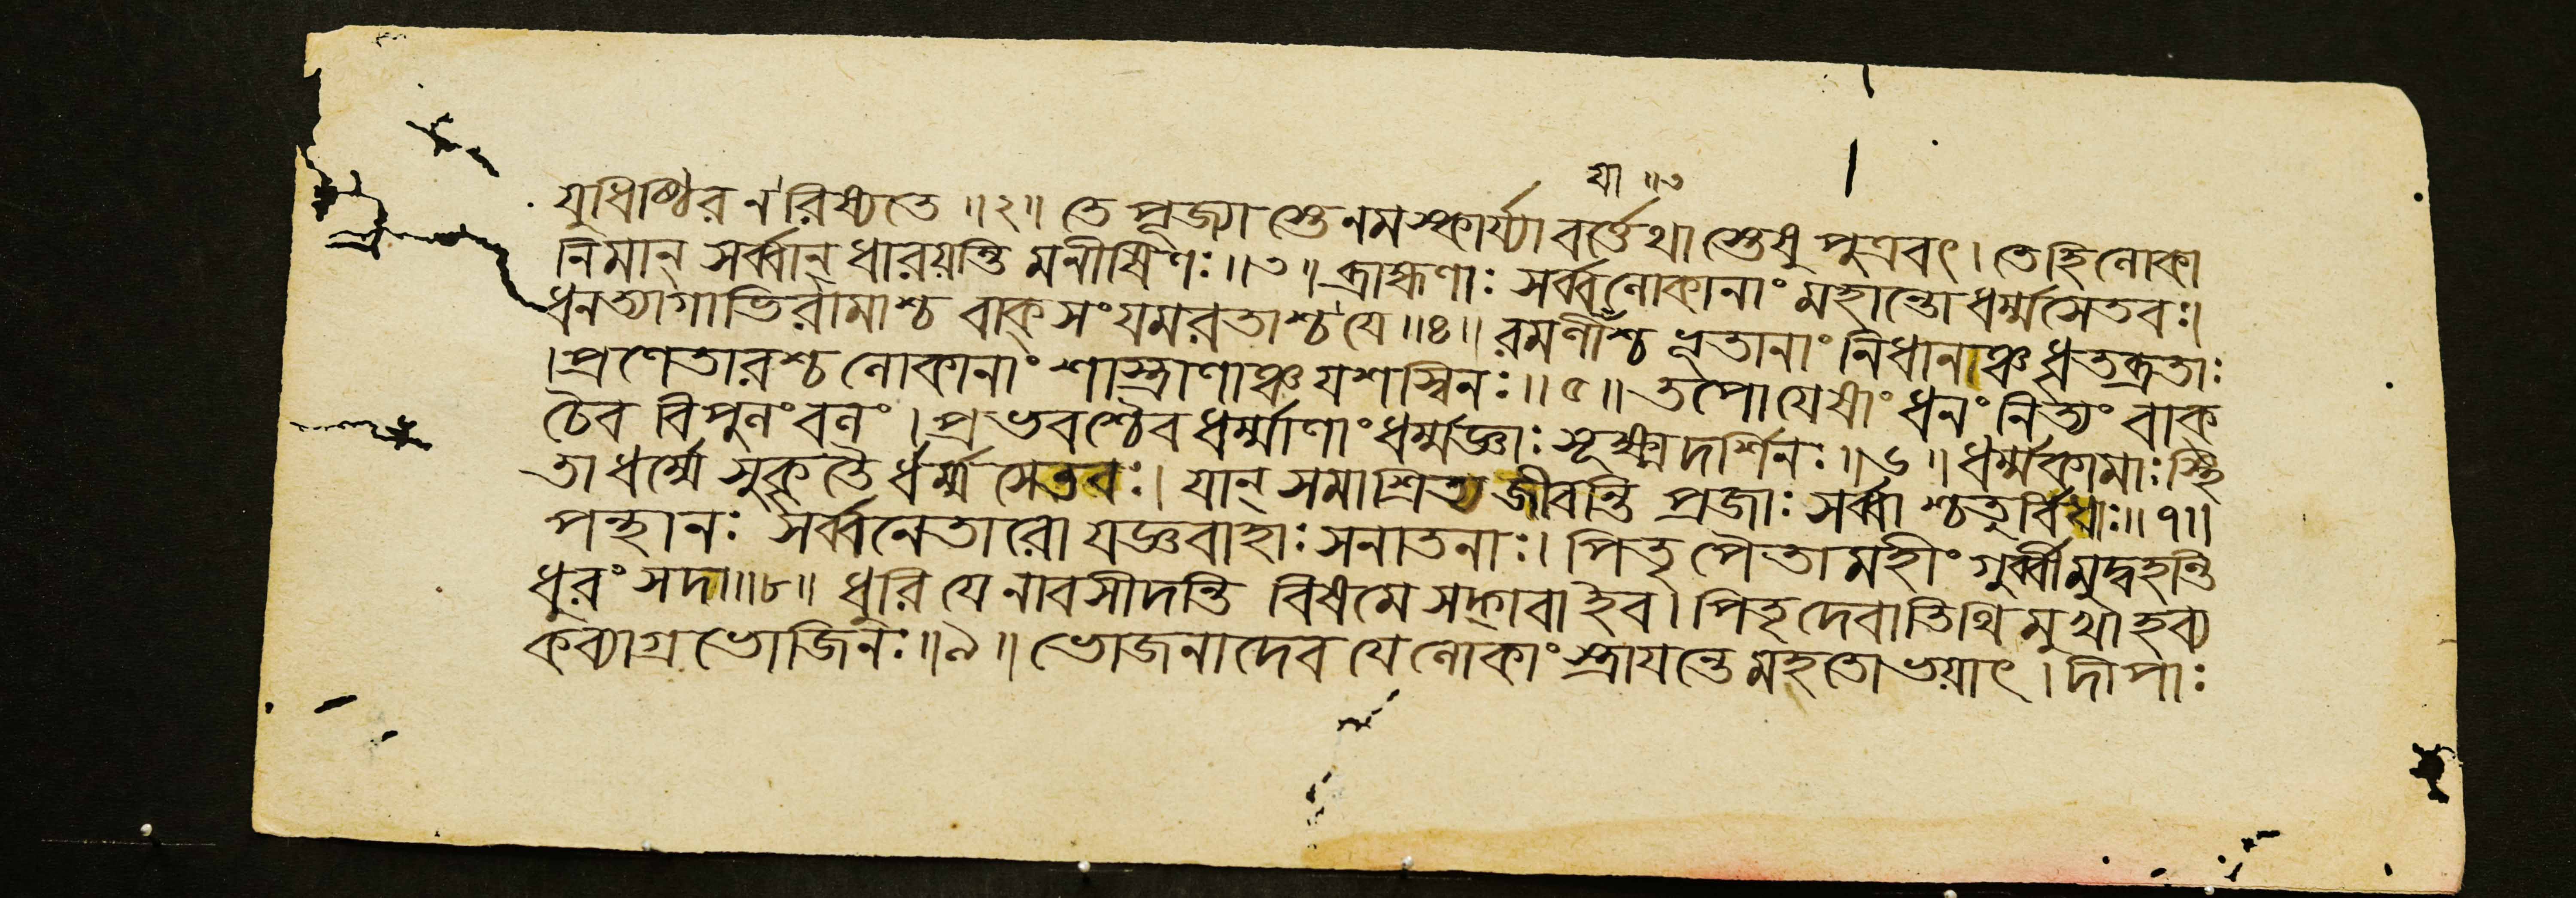 যা ॥৩
যুধিষ্ঠির ন রিষ্যতে ॥২॥ তে পূজ্যাস্তেনমস্কার্য্যাবর্ত্তেথাস্তেষু পুত্রবৎ। তেহিলোকা
নিমান্ সর্ব্বান্ ধারয়ন্তি মনীষিণঃ॥৩॥ ব্রাহ্মণাঃ সর্ব্বলোকানাং মহান্তোধর্ম্মসেতবঃ।
ধনত্যাগাভিরামাশ্চ বাক্সংযমরতাশ্চ যে॥৪॥ রমণীঁশ্চ ভূতানাং নিধানাঞ্চ ধৃতব্রতাঃ
।প্রণেতারশ্চ লোকানাং শাস্ত্রাণাঞ্চ যশস্বিনঃ॥৫॥ তপোযেষাং ধনং নিত্যং বাক
চৈব বিপুলং বলং। প্রভবশ্চৈব ধর্ম্মাণাং ধর্ম্মজ্ঞাঃ সূক্ষ্মদর্শিনঃ॥৬॥ ধর্ম্মকামাঃ স্থি
তাধর্ম্মে সুকৃতৈর্ধর্ম্মসেতবঃ। যান্ সমাশ্রিত্য জীবন্তি প্রজাঃ সর্ব্বাশ্চতুর্বিধাঃ॥৭॥
পন্থানঃ সর্ব্বনেতারো যজ্ঞবাহাঃ সনাতনাঃ। পিতৃপৈতামহীং গুর্ব্বীমুদ্বহন্তি
ধুরং সদা॥৮॥ ধুরি যে নাবসীদন্তি বিষমে সদ্গবাইব। পিতৃদেবাতিথিমুখা হব্য
কব্যাগ্রভোজিনঃ॥৯॥ ভোজনাদেব যে লোকাংস্ত্রাযন্তে মহতোভয়াৎ। দীপাঃ